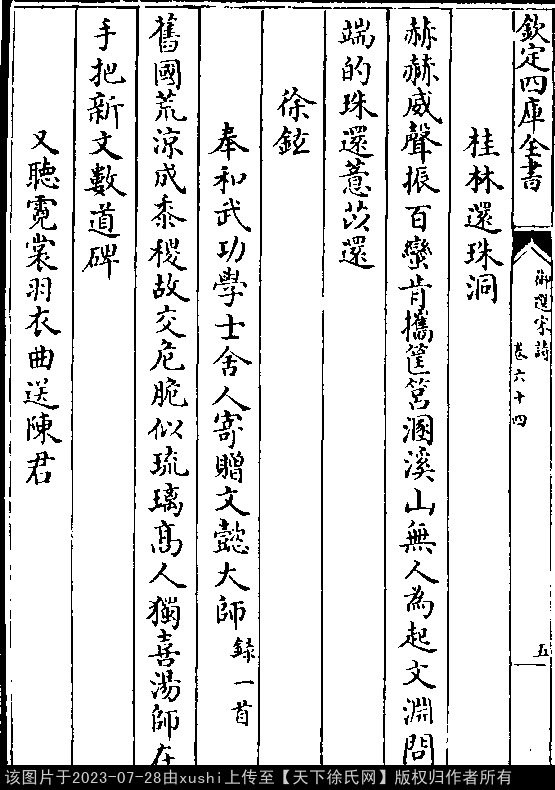 欽定四庫全書
御選宋詩
卷六十四
五
桂林還珠洞
赫赫威聲振百蠻肯攜筐筥溷溪山無人為起文淵問
端的珠還薏苡還
徐鉉
奉和武功學士舍人寄贈文懿大師錄一首
舊國荒涼成黍稷故交危脆似琉璃高人獨喜湯師在
手把新文數道碑
又聽霓裳羽衣曲送陳君
该图片于2023-07-28由xushi上传至【天下徐氏网】版权归作者所有